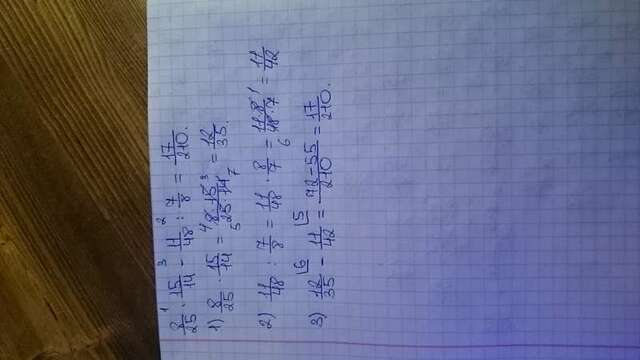 8/25 ·¹ 15/14 -³ 11/48 :² 7/8 = 17/210.
1) 8/25 · 15/14 = ⁴8·15³/₅25·14₇ = 12/35.
2) 11/48 : 7/8 = 11/48 · 8/7 = 11·8¹/₆48·7 = 11/42
3) 12/35 ⌊6 - 11/42 ⌊5 = 72-55/210 = 17/210.